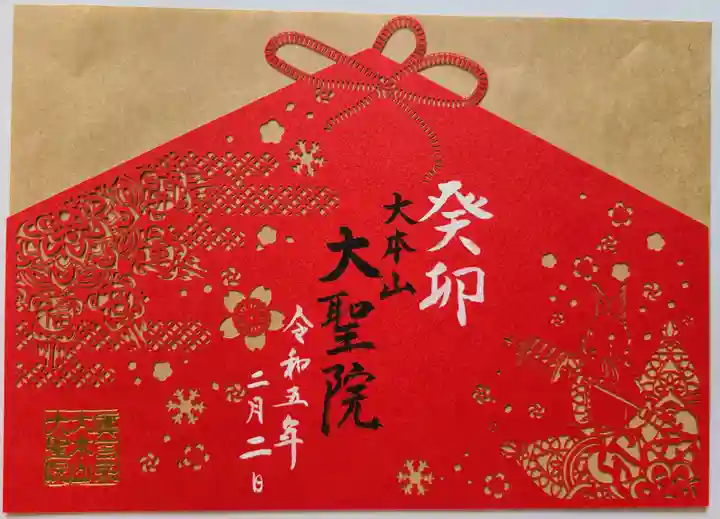 癸卯
大本山
大聖院
令和五年
二月二日
大本山
大聖院